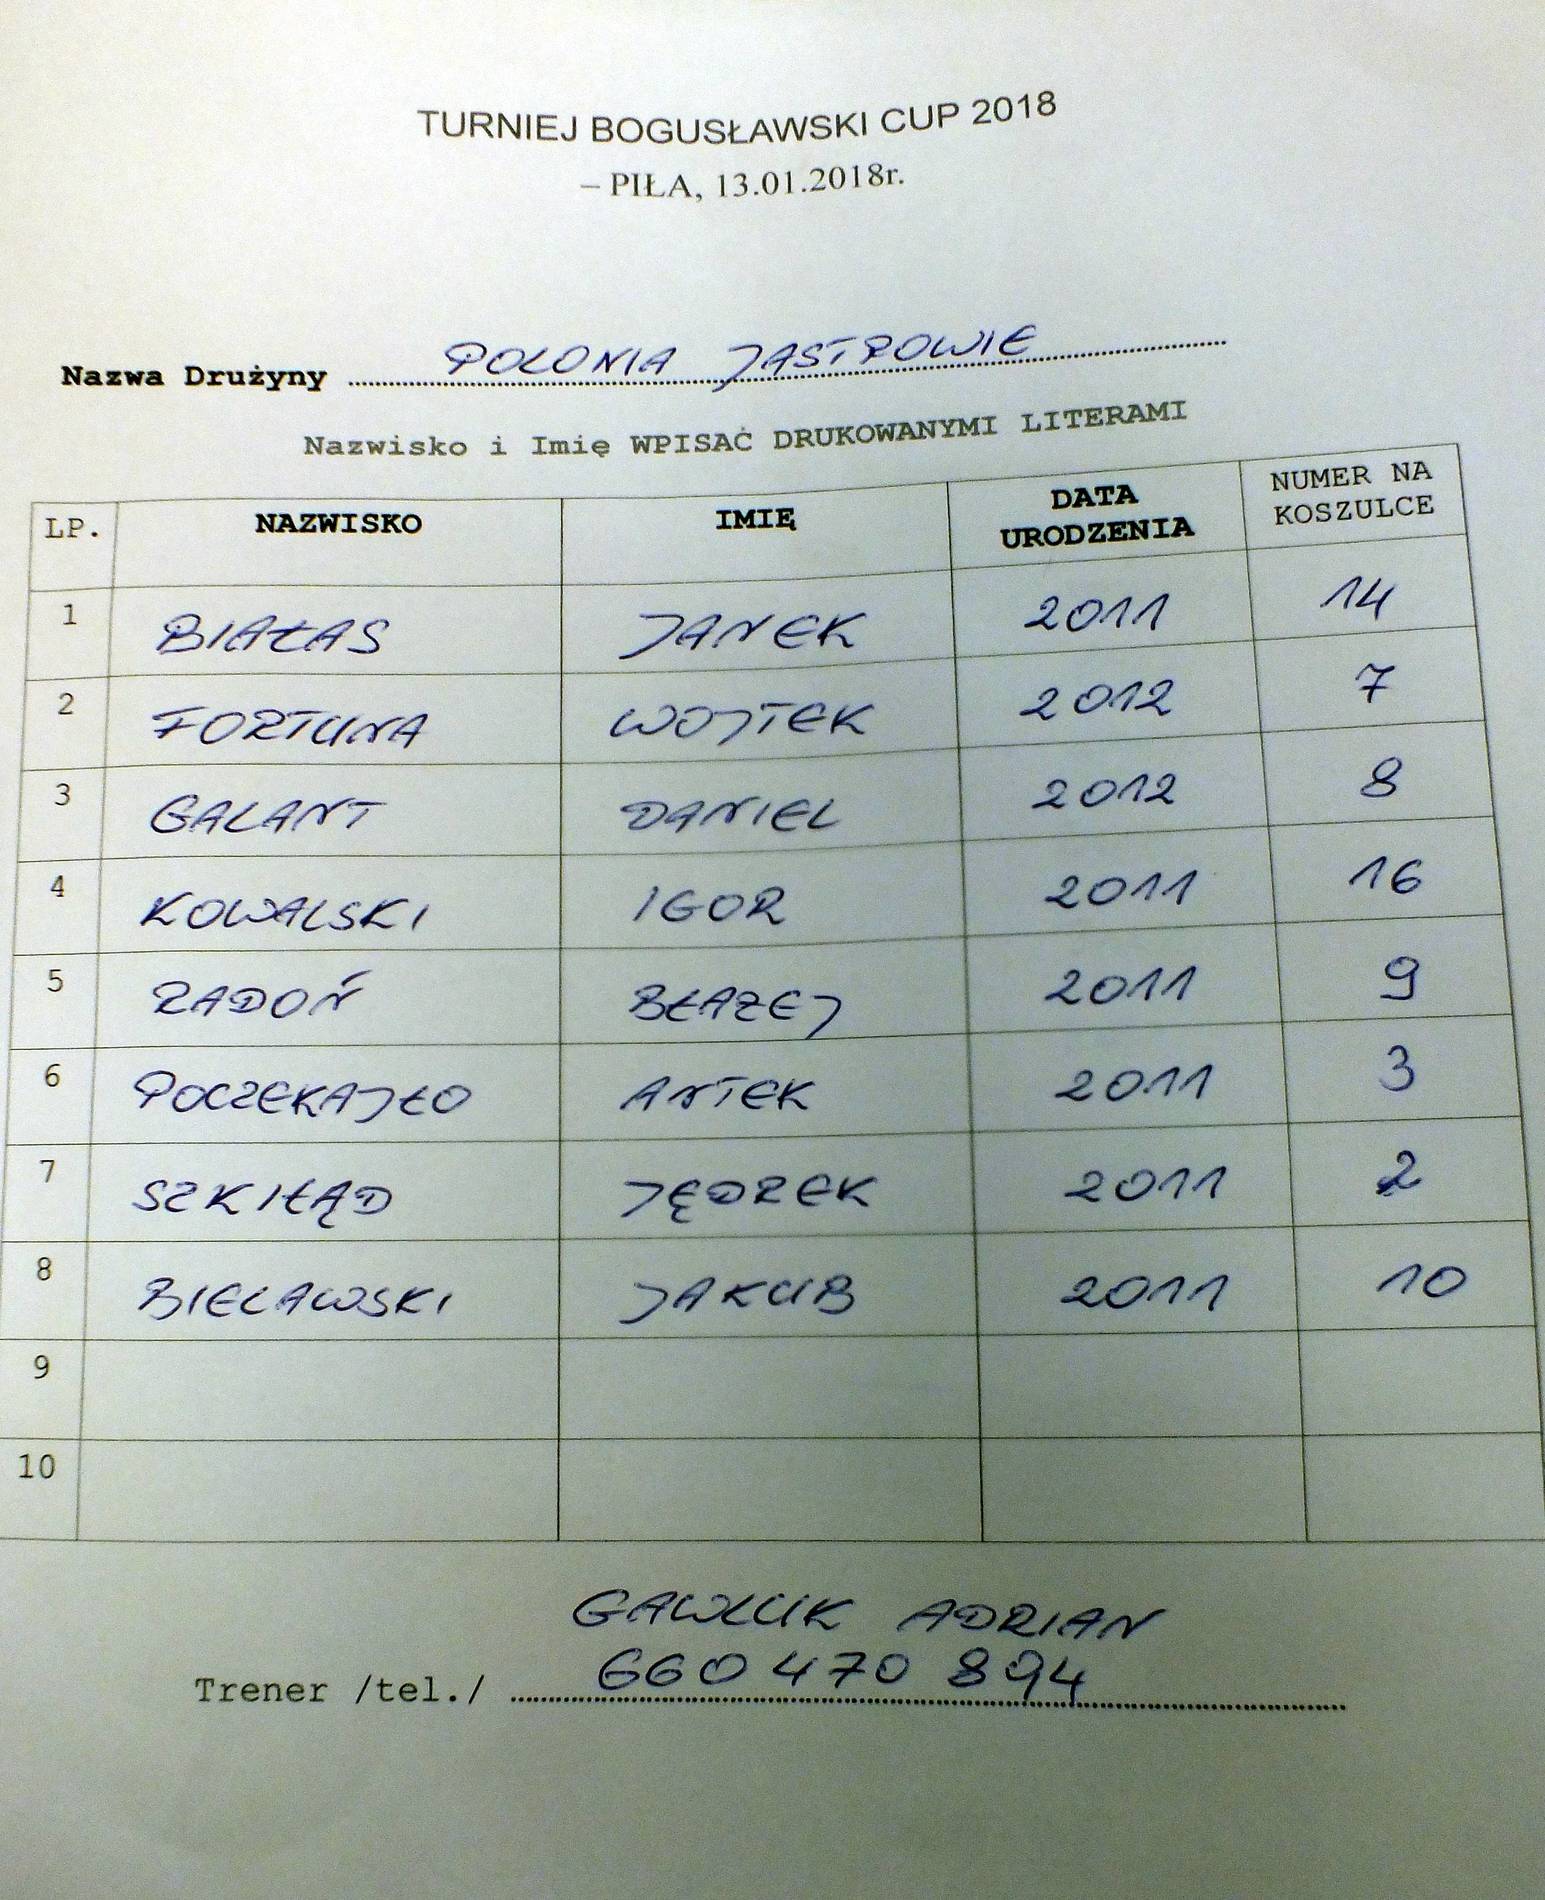 TURNIEJ BOGUSŁAWSKI CUP 2018
– PIŁA, 13.01.2018r.
Nazwa Drużyny POLONIA JASTROWIE
Nazwisko i Imię WPISAĆ DRUKOWANYMI LITERAMI
LP. NAZWISKO IMIĘ DATA URODZENIA NUMER NA KOSZULCE
1 BIAŁAS JANEK 2011 14
2 FORTUNA WOJTEK 2012 7
3 GALANT DANIEL 2012 8
4 KOWALSKI IGOR 2011 16
5 RADOŃ BŁAŻEJ 2011 9
6 POCZEKAJŁO ANTEK 2011 3
7 SZKIŁĄD JĘDREK 2011 2
8 BIELAWSKI JAKUB 2011 10
9
10
GAWLUK ADRIAN
Trener /tel./ 660 470 894